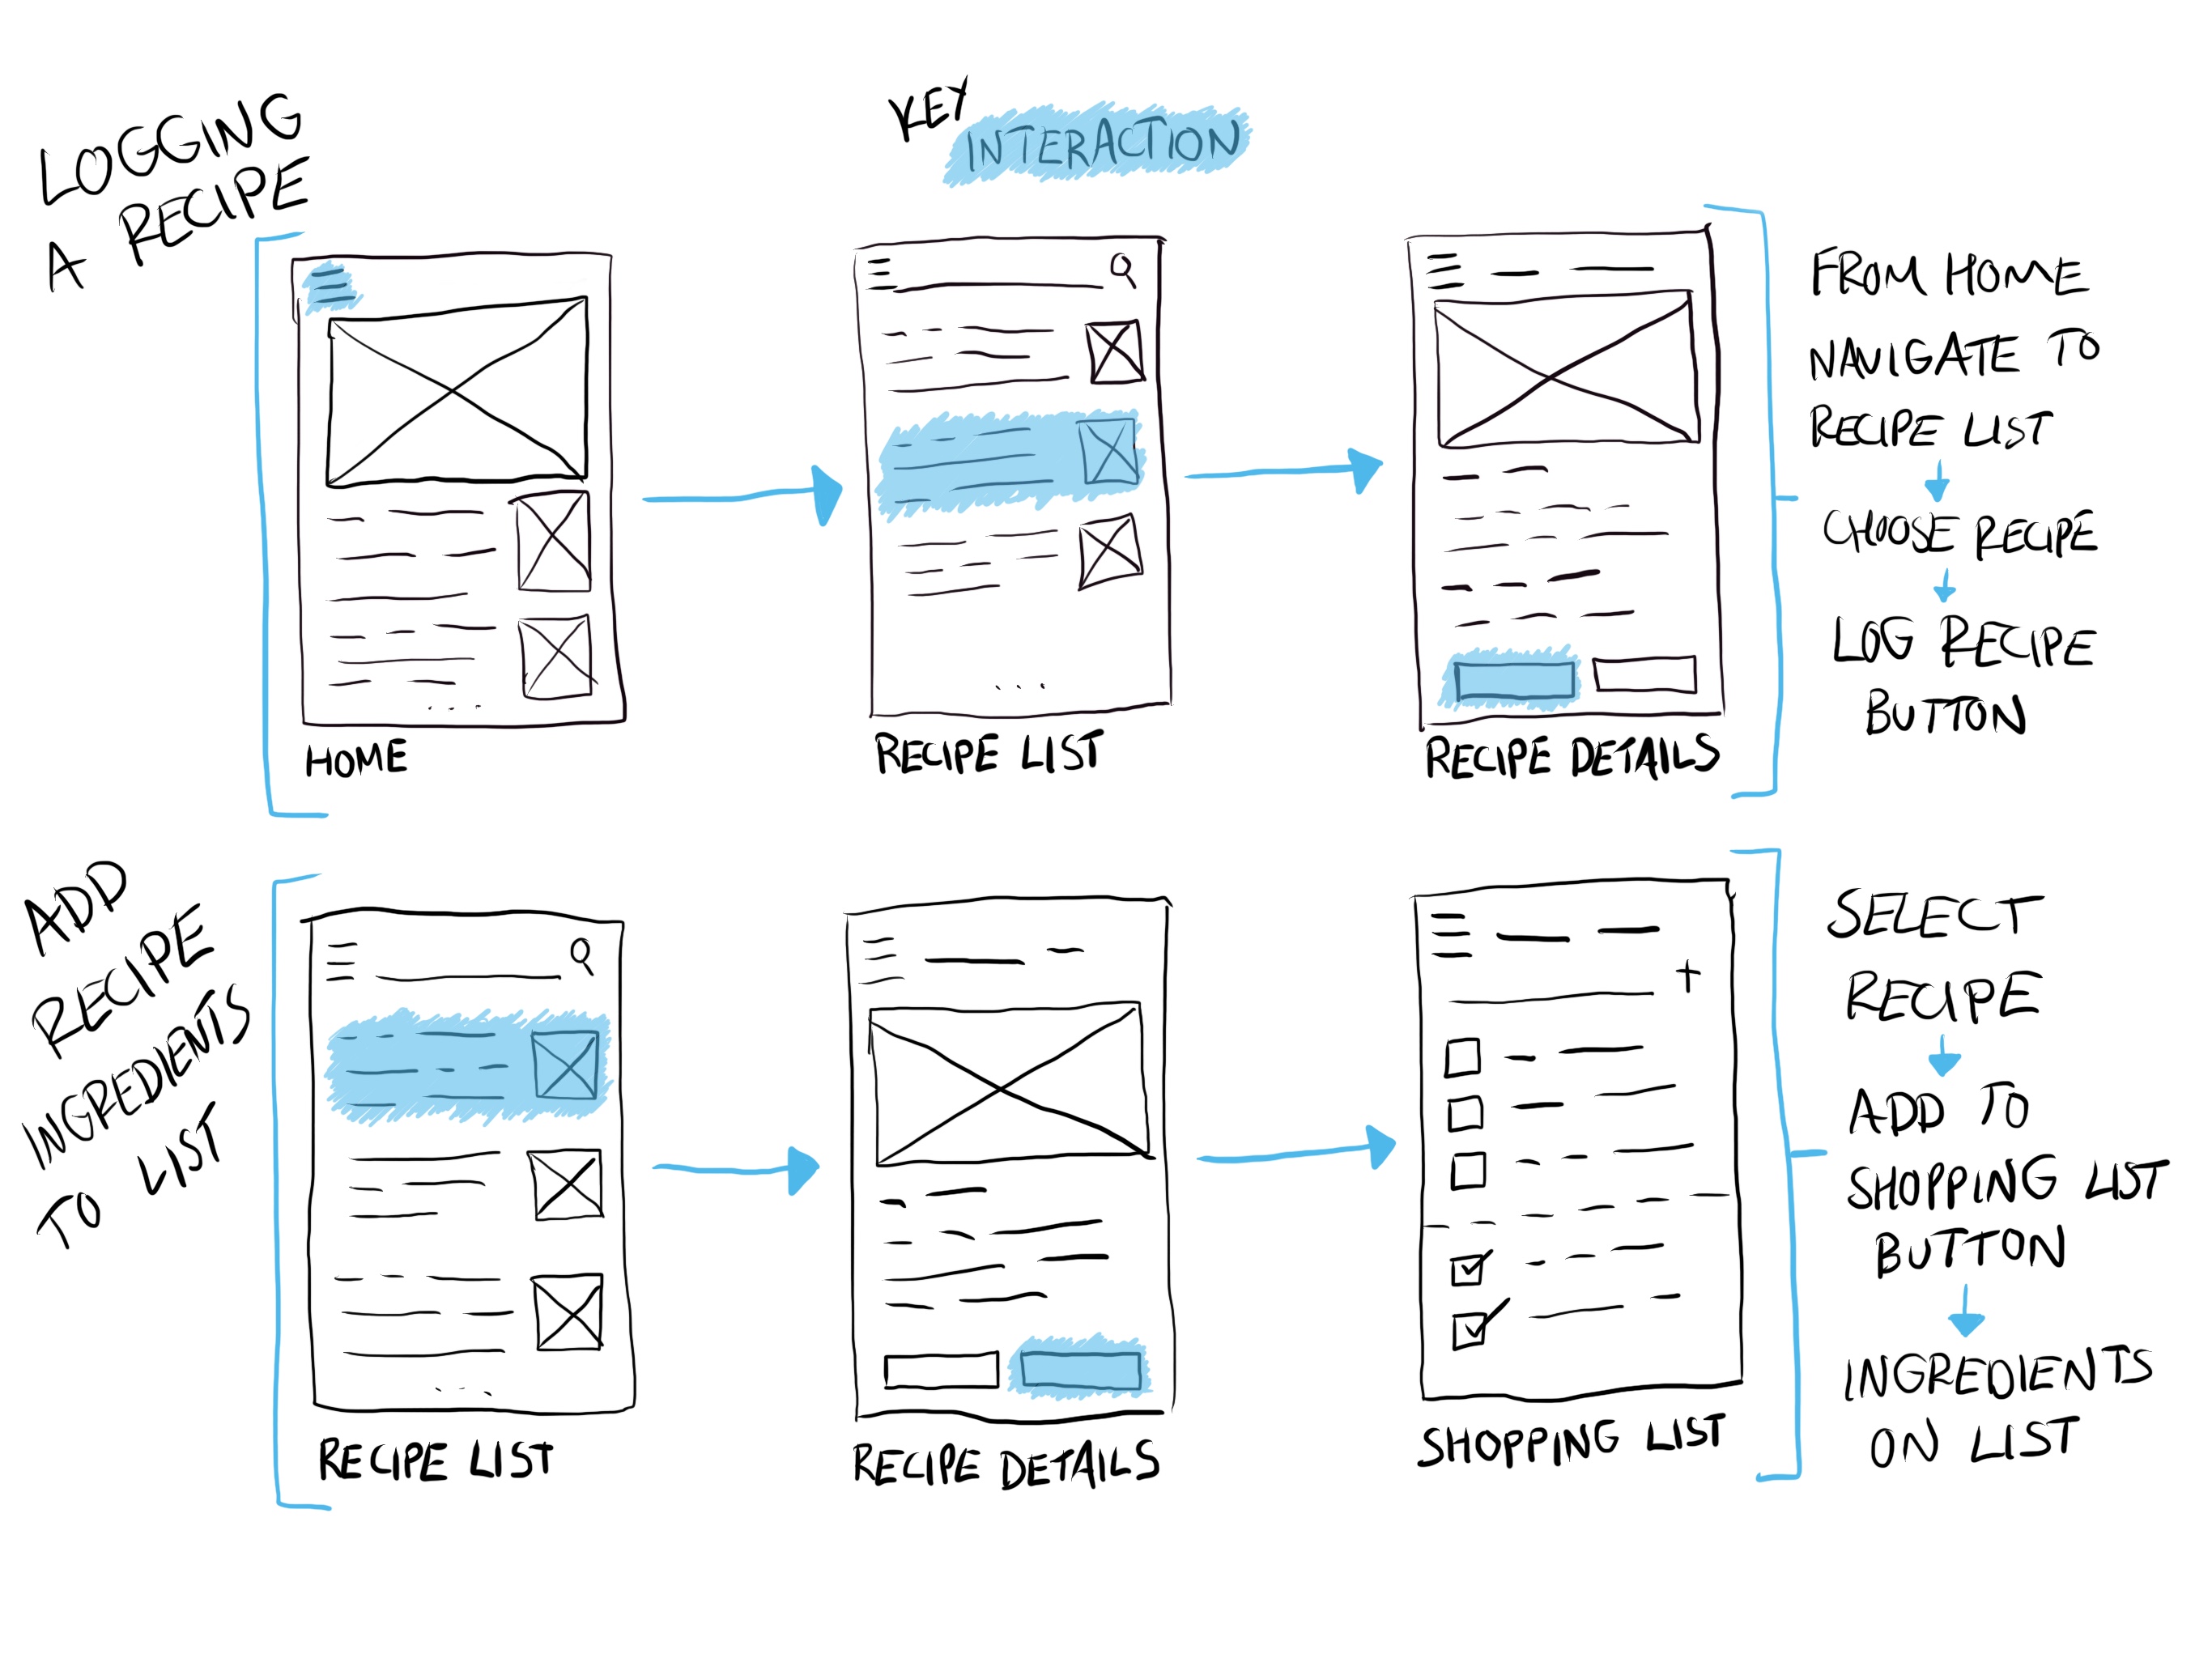 LOGGING
A RECIPE
KEY
INTERACTION
HOME
RECIPE LIST
RECIPE DETAILS
FROM HOME
NAVIGATE TO
RECIPE LIST
CHOOSE RECIPE
LOG RECIPE
BUTTON
ADD
RECIPE
INGREDIENTS
TO LIST
RECIPE LIST
RECIPE DETAILS
SHOPPING LIST
SELECT
RECIPE
ADD TO
SHOPPING LIST
BUTTON
INGREDIENTS
ON LIST